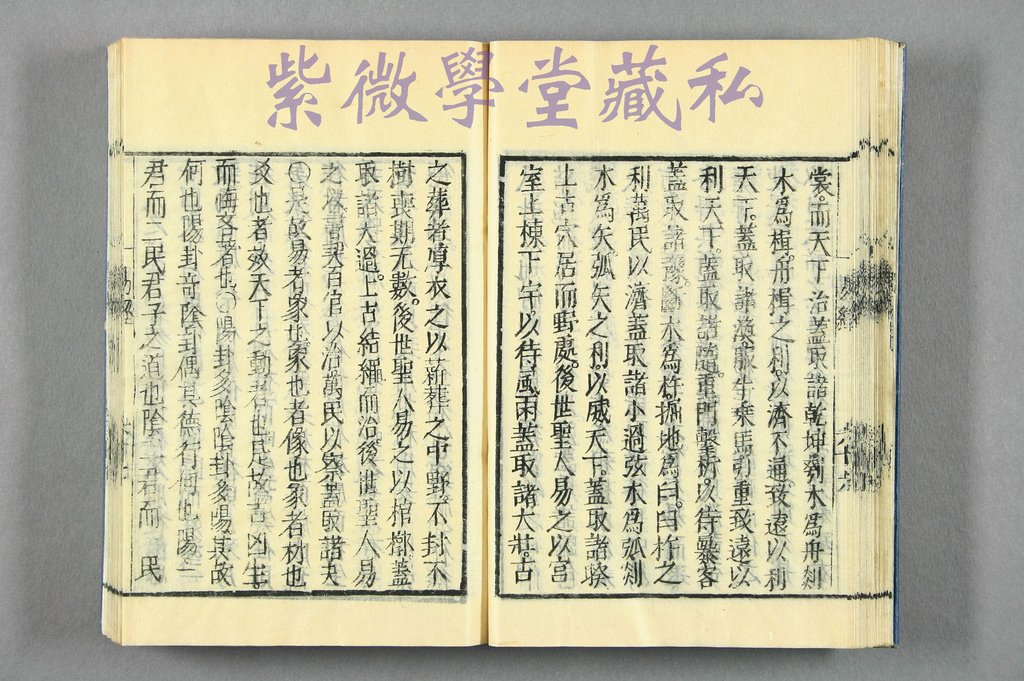 紫微學堂藏私
裳。而天下治蓋取諸乾坤刳木爲舟剡
木爲楫。舟楫之利。以濟不通致遠以利
天下。蓋取諸渙。服牛乘馬引重致遠以
利天下。蓋取諸隨。重門擊柝。以待暴客
蓋取諸豫。斷木爲杵。掘地爲臼。臼杵之
利萬民以濟蓋取諸小過弦木爲弧剡
木爲矢。弧矢之利。以威天下。蓋取諸睽
上古穴居而野處。後世聖人易之以宮
室上棟下宇。以待風雨蓋取諸大壯。古
之葬者厚衣之以薪葬之中野。不封不
樹喪期无數。後世聖人易之以棺槨蓋
取諸大過。上古結繩而治後世聖人易
之以書契百官以治萬民以察蓋取諸夬
是故易者象也象也者像也彖者材也
爻也者效天下之動者也是故吉凶生。
而悔吝著也○陽卦多陰陰卦多陽其故
何也陽卦奇陰卦偶其德行何也陽一
君而二民君子之道也陰二君而一民
易經